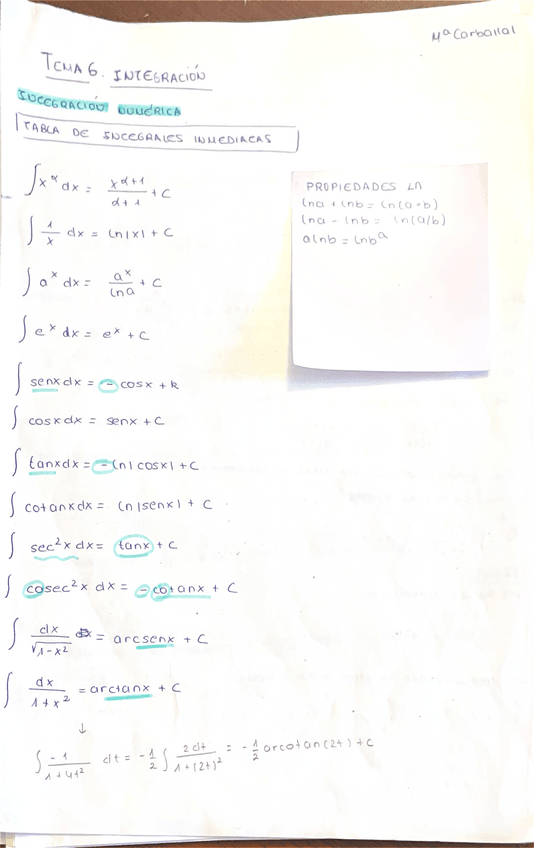 Mª Carballal
TEMA 6. INTEGRACIÓN
INTEGRACIÓN NUMÉRICA
TABLA DE INTEGRALES INMEDIATAS
∫ x^α dx = x^(α+1)/(α+1) + C
∫ 1/x dx = ln|x| + C
∫ a^x dx = a^x/ln a + C
∫ e^x dx = e^x + C
∫ senx dx = - cosx + k
∫ cosx dx = senx + C
∫ tanx dx = - ln|cosx| + C
∫ cotanx dx = ln|senx| + C
∫ sec²x dx = tanx + C
∫ cosec²x dx = - cotanx + C
∫ dx/√(1-x²) = arcsenx + C
∫ dx/(1+x²) = arctanx + C
↓
∫ -1/(1+4t²) dt = -1/2 ∫ 2dt/(1+(2t)²) = -1/2 arcotan(2t) + C
PROPIEDADES LN
lna + lnb = ln(a·b)
lna - lnb = ln(a/b)
alnb = lnb^a